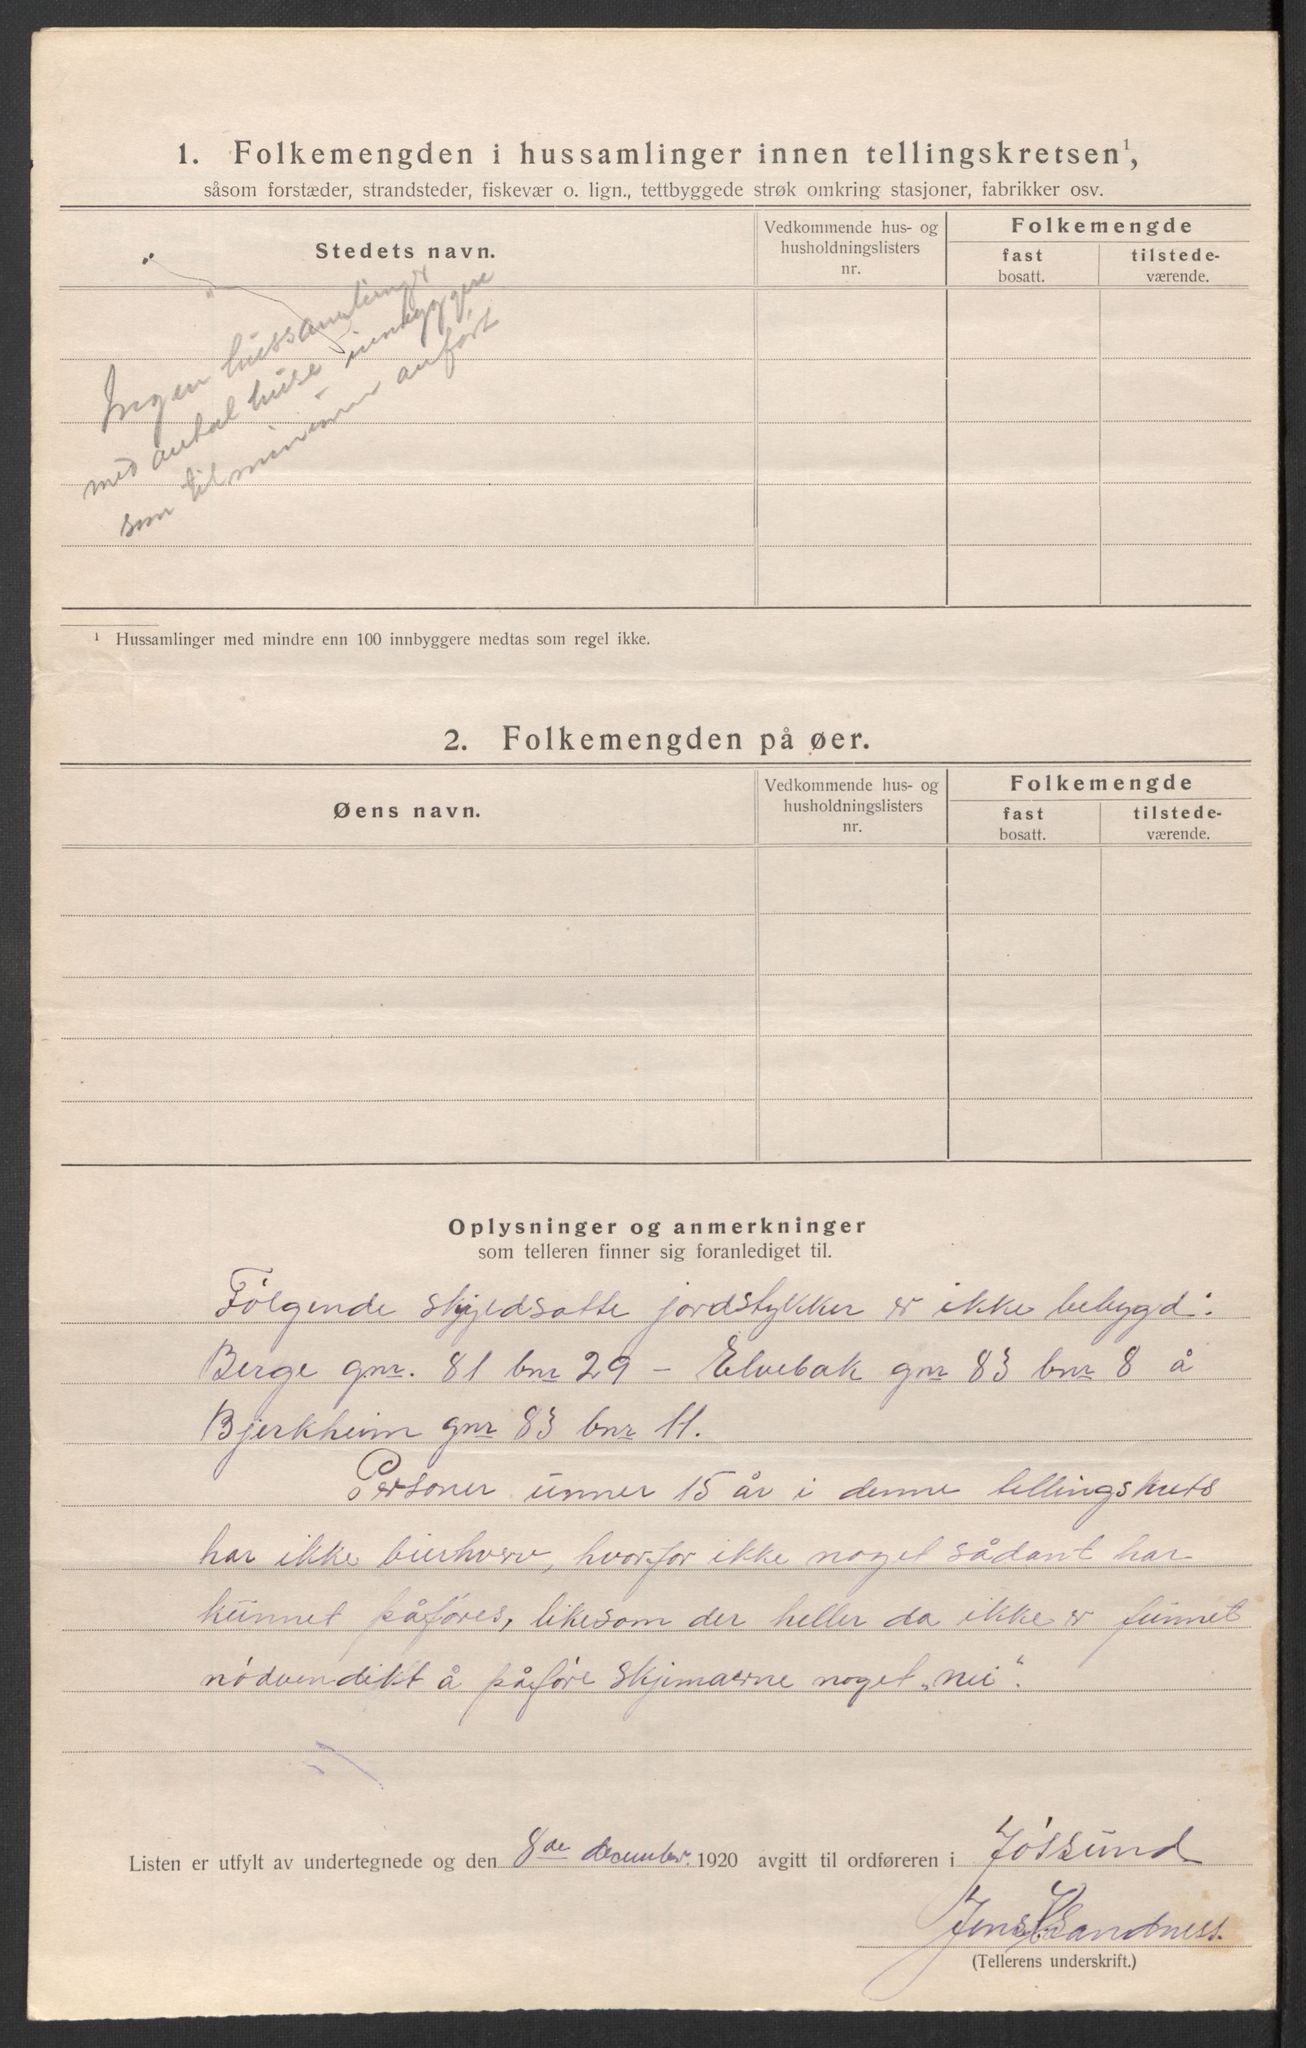 1. Folkemengden i hussamlinger innen tellingskretsen¹,
såsom forstæder, strandsteder, fiskevær o. lign., tettbyggede strøk omkring stasjoner, fabrikker osv.
Stedets navn.
Vedkommende hus- og husholdningslisters nr.
Folkemengde
fast bosatt.
tilstede-værende.
Ingen hussamlinger
med antal huse innbyggere
som til minimum anført
¹ Hussamlinger med mindre enn 100 innbyggere medtas som regel ikke.
2. Folkemengden på øer.
Øens navn.
Vedkommende hus- og husholdningslisters nr.
Folkemengde
fast bosatt.
tilstede-værende.
Oplysninger og anmerkninger
som telleren finner sig foranlediget til.
Følgende skyldsatte jordstykker er ikke bebygd:
Berge gnr. 81 bnr 29 – Elvebak gnr 83 bnr 8 å
Bjerkheim gnr 83 bnr 11.
Personer unner 15 år i denne tellingskrets
har ikke bierhverv, hvorfor ikke noget sådant har
kunnet påføres, likesom der heller da ikke er funnet
nødvendikt å påføre skjemaerne noget „nei“.
Listen er utfylt av undertegnede og den 8de december 1920 avgitt til ordføreren i Jøssund
Jens H Sandness.
(Tellerens underskrift.)